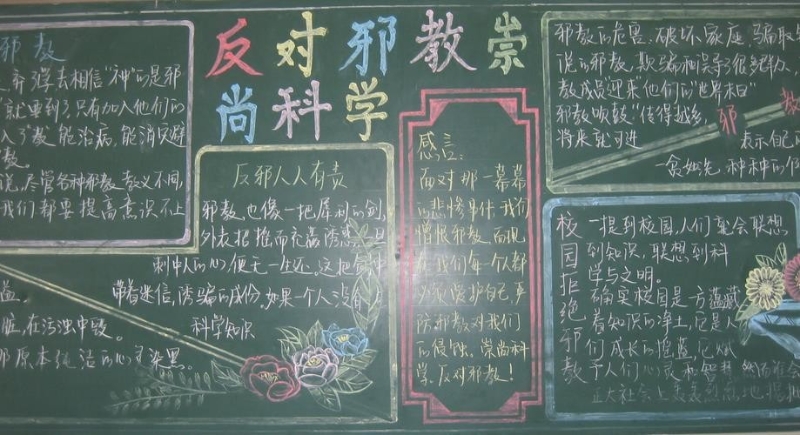 反对邪教崇
尚科学
邪教
弃学去相信"神"的是邪
就要到了,只有加入他们的
入了教,能治病,能消灾避
教。
说,尽管各种邪教教义不同,
我们都要提高意识不上
益。
脏,在污浊中毁。
原本纯洁的心灵染黑。
反邪人人有责
邪教,也像一把犀利的剑,
外表
刺中人的心,便无一生还。这把剑
带着迷信,诱骗的成份。如果一个人没有
科学知识
感言:
面对那一幕幕
的悲惨事件,我们
憎恨邪教。面
我们每个人都
必须保护自己,严
防邪教对我们
的侵蚀。崇尚科
学,反对邪教!
邪教的危害:破坏家庭,骗取
说的邪教,欺骗和误导了很多
教成员"迎来"他们的"世界末日"
邪教
将来就可进
邪教
表示自己
校园拒绝邪教
一提到校园,人们就会联想
到知识,联想到科
学与文明。
确实校园是一方蕴藏
着知识的净土,它是人
们成长的摇篮,它赋
于人们心灵和智慧